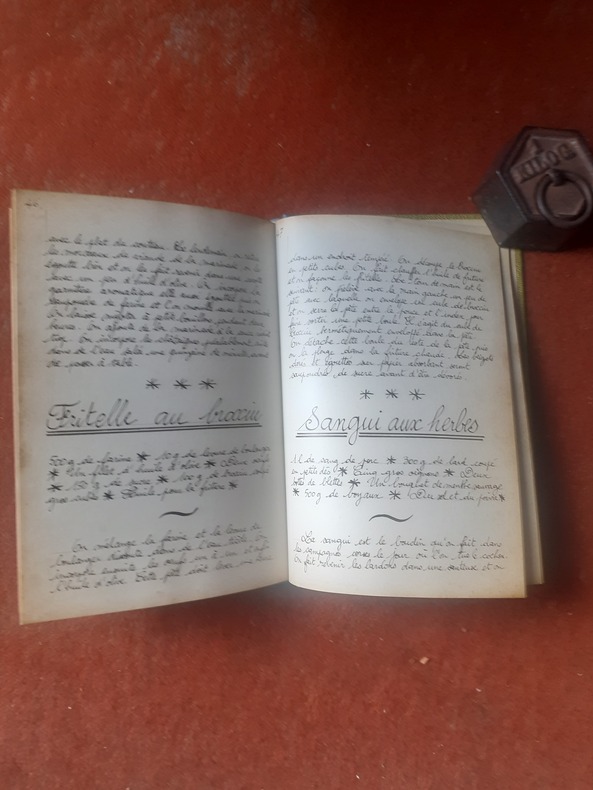 46
avec le plat de
les morceaux de viande de la marinade
bien et on les fait revenir dans une cocotte
avec un peu d'huile d'olive. On incorpore la
garniture aromatique elle aussi
saupoudre de farine et l'on mouille avec la marinade
On laisse mijoter à petits bouillons pendant deux
heures. On ajoute de la marinade si la sauce réduit
trop. On incorpore les
dans de l'eau salée une quinzaine de minutes avant
de passer à table.
Fritelle au brocciu
500 g de farine * 10 g de levure de boulanger
* Un filet d'huile d'olive * Deux œufs
* 100 g de sucre * 100 g de brocciu coupé
gros cubes * Huile pour la friture *
On mélange la farine et la levure de
boulanger dissoute dans de l'eau tiède. On
incorpore ensuite les œufs un à un et enfin
l'huile d'olive. Cette pâte doit lever une heure
47
dans un endroit tempéré. On découpe le brocciu
en petits cubes. On fait chauffer l'huile de friture
et on façonne les fritelle. Le tour de main est le
suivant on prélève avec la main gauche un peu de
pâte avec laquelle on enveloppe un cube de brocciu
et on serre la pâte entre le pouce et l'index pour
faire sortir une petite boule. Il s'agit du cube de
brocciu hermétiquement enveloppé dans la pâte.
On détache cette boule du reste de la pâte puis
on la plonge dans la friture chaude. Les beignets
dorés et égouttés sur papier absorbant seront
saupoudrés de sucre avant d'être servis.
* * *
Sangui aux herbes
1 l de sang de porc * 300 g de lard coupé
en petits dés * Cinq gros oignons * Deux
bottes de blettes * Un bouquet de menthe sauvage
* 500 g de boyaux * Du sel et du poivre *
Le sangui est le boudin qu'on fait dans
les campagnes corses le jour où l'on tue le cochon.
On fait revenir les lardons dans une sauteuse et on